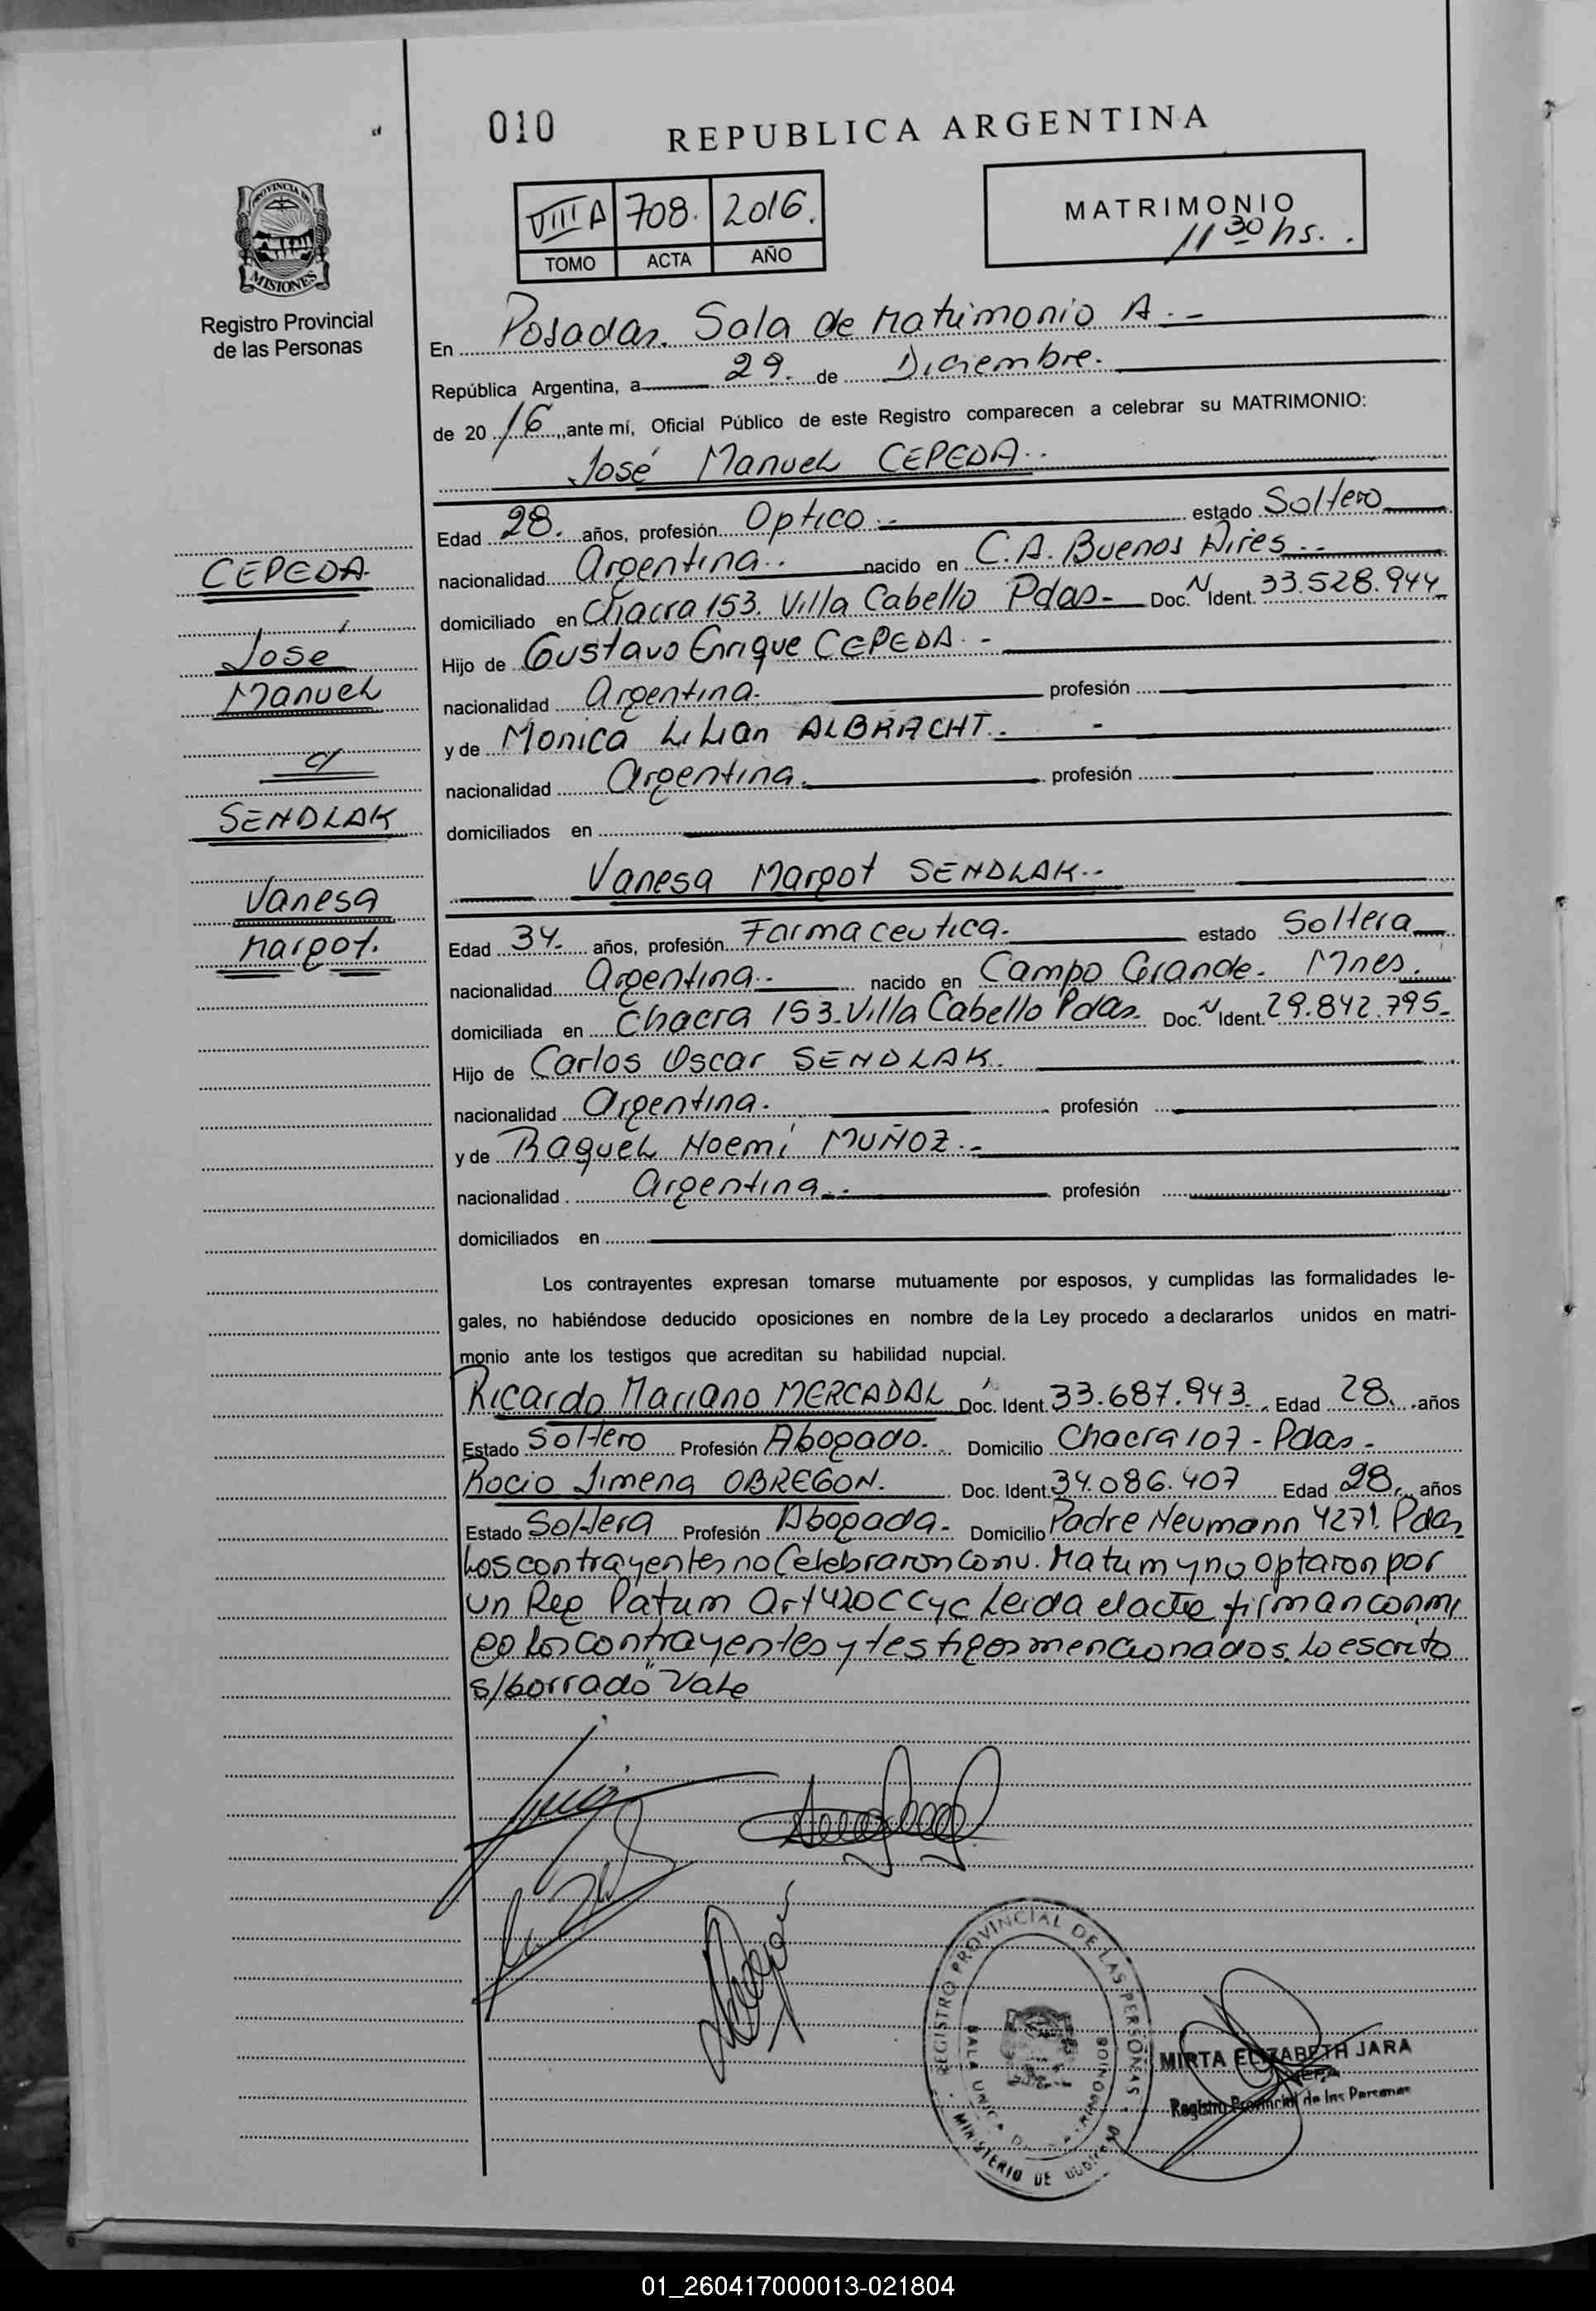 010
REPUBLICA ARGENTINA
PROVINCIA DE
MISIONES
Registro Provincial
de las Personas
VIIII A 708. 2016.
TOMO ACTA AÑO
MATRIMONIO
11 30 hs.
En Posadas. Sala de Matrimonio A.-
República Argentina, a 29. de Diciembre.
de 20 16 ,,ante mí, Oficial Público de este Registro comparecen a celebrar su MATRIMONIO:
José Manuel CEPEDA..
Edad 28. años, profesión Optico.- estado Soltero
nacionalidad Argentina.. nacido en C.A. Buenos Aires.-
domiciliado en Chacra 153. Villa Cabello Pdas- Doc. N Ident. 33.528.944
Hijo de Gustavo Enrique CEPEDA.-
nacionalidad Argentina. profesión
y de Monica Lilian ALBRACHT.. -
nacionalidad Argentina. profesión
domiciliados en
CEPEDA
José
Manuel
c/
SENDLAK
Vanesa
Margot.
Vanesa Margot SENDLAK.-
Edad 34. años, profesión Farmaceutica. estado Soltera
nacionalidad Argentina.- nacido en Campo Grande. Mnes.
domiciliada en Chacra 153. Villa Cabello Pdas. Doc. N Ident. 29.842.795-
Hijo de Carlos Oscar SENDLAK.
nacionalidad Argentina. profesión
y de Raquel Noemí MUÑOZ.-
nacionalidad Argentina.. profesión
domiciliados en
Los contrayentes expresan tomarse mutuamente por esposos, y cumplidas las formalidades le-
gales, no habiéndose deducido oposiciones en nombre de la Ley procedo a declararlos unidos en matri-
monio ante los testigos que acreditan su habilidad nupcial.
Ricardo Mariano MERCADAL Doc. Ident. 33.687.943. Edad 28. años
Estado Soltero Profesión Abogado. Domicilio Chacra 107 - Pdas -
Rocio Jimena OBREGON. Doc. Ident. 34.086.407 Edad 28. años
Estado Soltera Profesión Abogada- Domicilio Padre Neumann 4271. Pdas
Los contrayentes no Celebraron Conv. Matrim y no optaron por
un Reg Patrim Art 420 CCyC Leida el acta firman conmi
go los contrayentes y testigos mencionados. Lo escrito
s/borrado" Vale
REGISTRO PROVINCIAL DE LAS PERSONAS
MINISTERIO DE
MIRTA ELIZABETH JARA
JEFA
Registro Provincial de las Personas
01_260417000013-021804